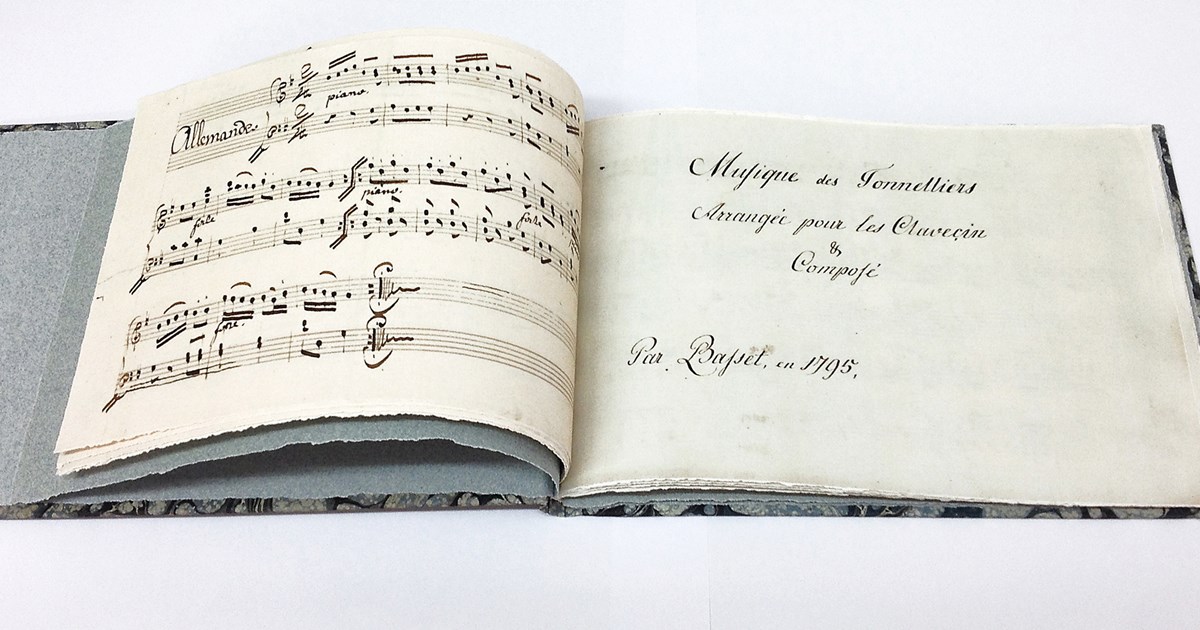 Allemande.
piano.
forte
piano.
forte
forte.
Musique des Tonnelliers
Arrangée pour les Claveçin
&
Composé
Par Basset, en 1795.